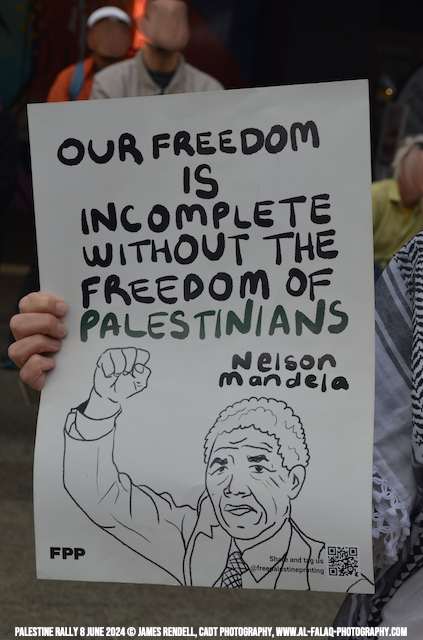 OUR FREEDOM
IS
INCOMPLETE
WITHOUT THE
FREEDOM OF
PALESTINIANS
Nelson
mandela
FPP
Share and tag us
@freepalestineprinting
PALESTINE RALLY 8 JUNE 2024 © JAMES RENDELL, CADT PHOTOGRAPHY, WWW.AL-FALAQ-PHOTOGRAPHY.COM